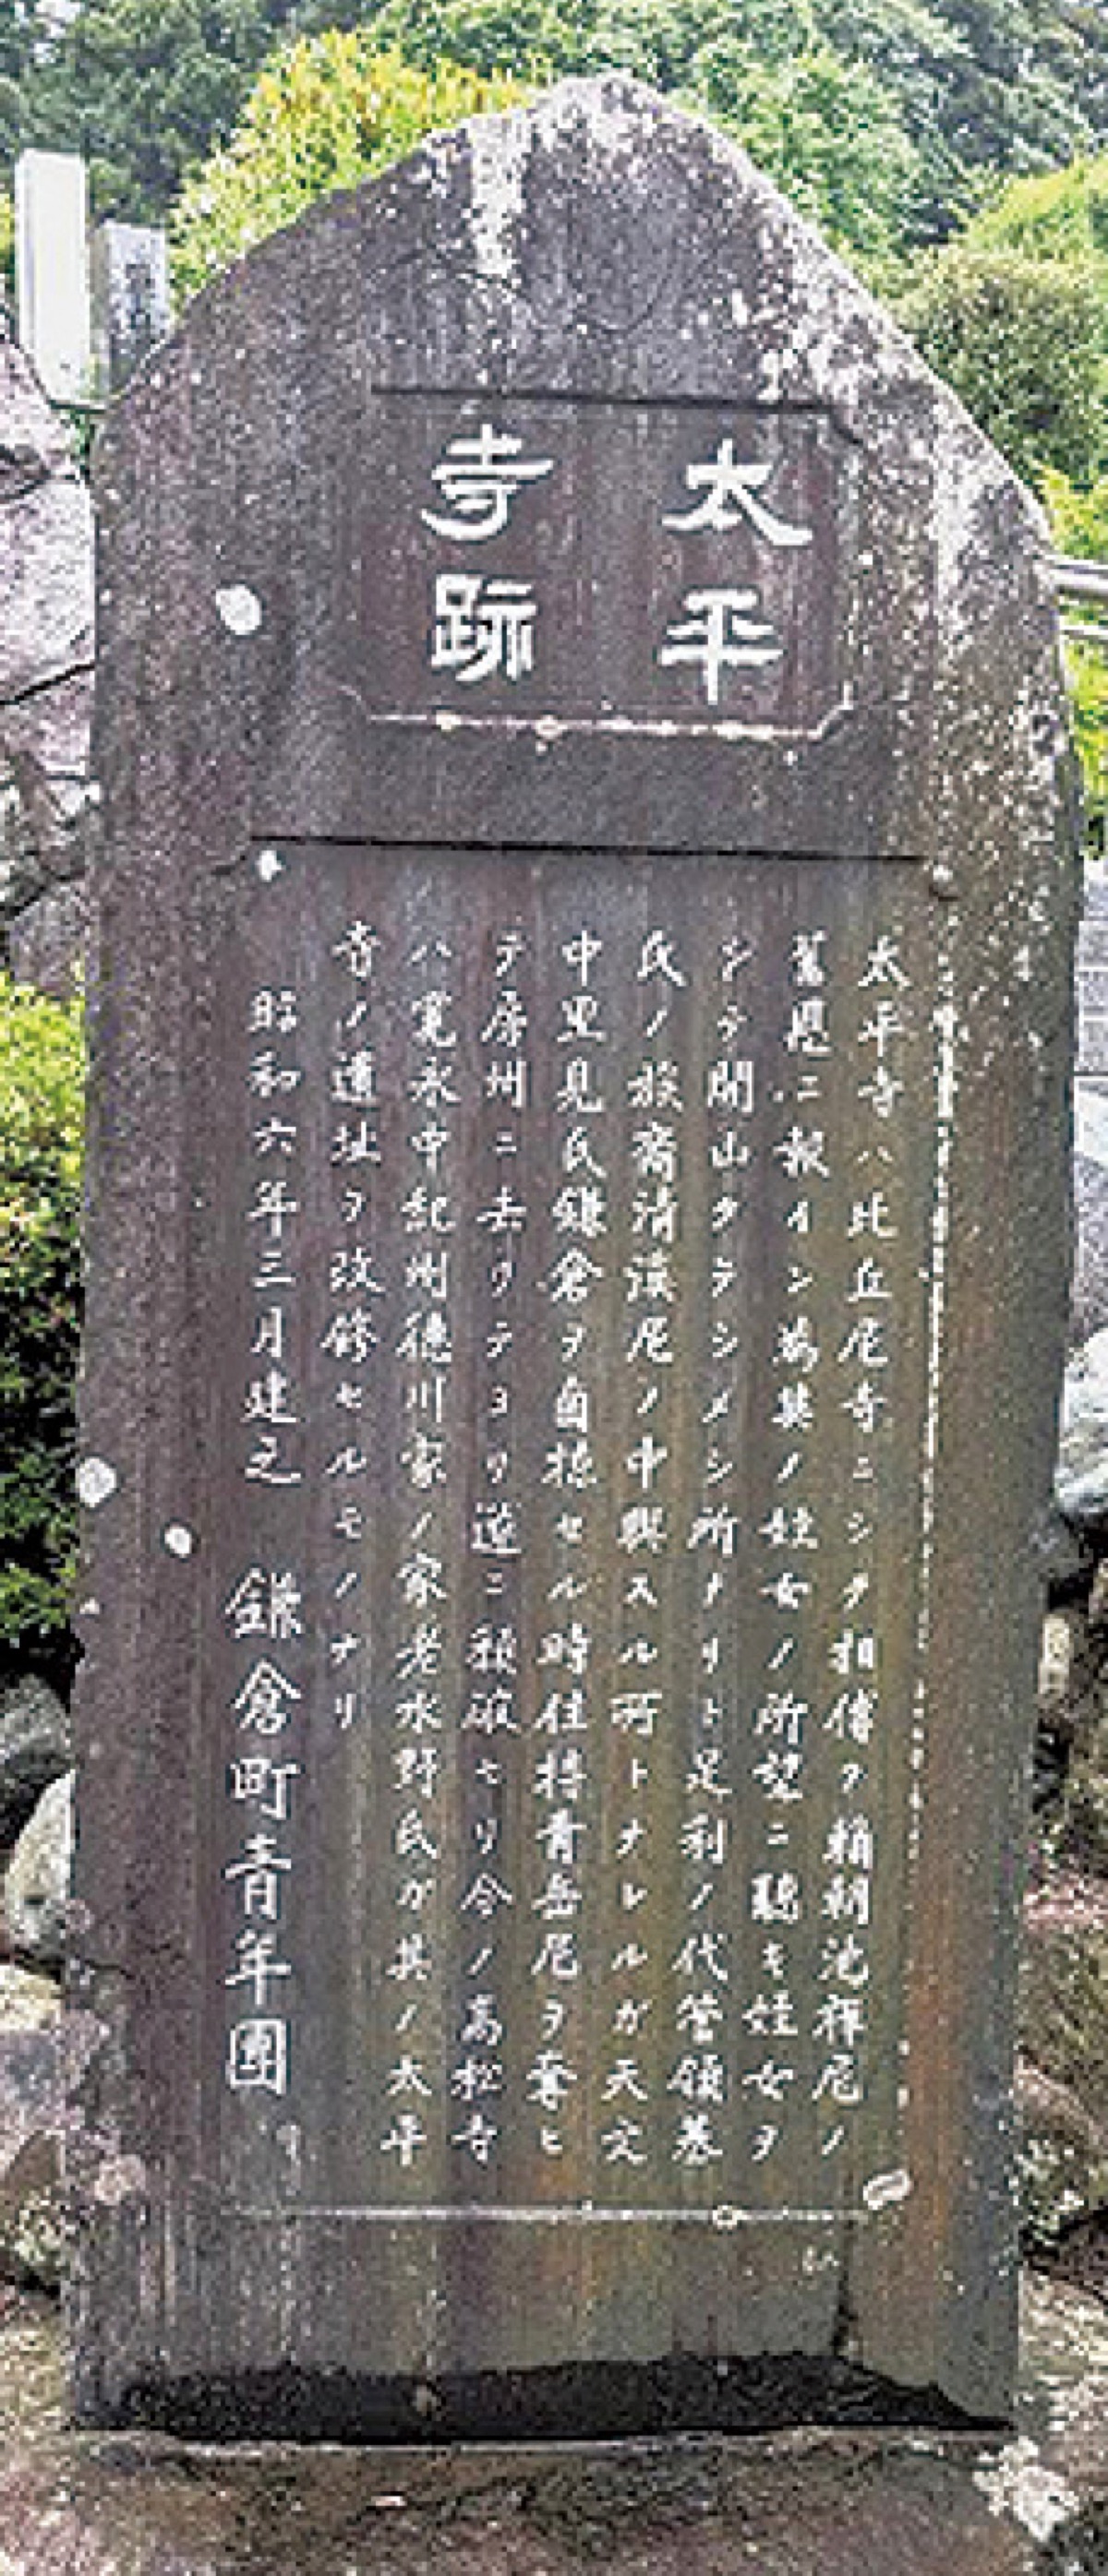 太平
寺跡
太平寺ハ比丘尼寺ニシテ相傳フ頼朝池禅尼ノ
舊恩ニ報イン為其ノ姪女ノ所望ニ聽キ姪女ヲ
シテ開山タラシメシ所ナリト足利ノ代管領基
氏ノ族裔清渓尼ノ中興スル所トナレルガ天文
中里見氏鎌倉ヲ囪掠セル時住持青岳尼ヲ奪ヒ
テ房州ニ去リテヨリ遂ニ頽破セリ今ノ高松寺
ハ寛永中紀州徳川家ノ家老水野氏ガ其ノ太平
寺ノ遺址ヲ改修セルモノナリ
昭和六年三月建之 鎌倉町青年團